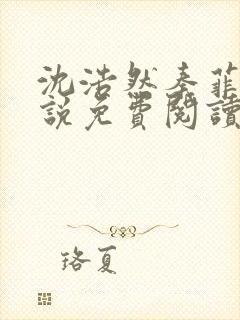 沈浩然秦菲
說免費閱讀
珞夏